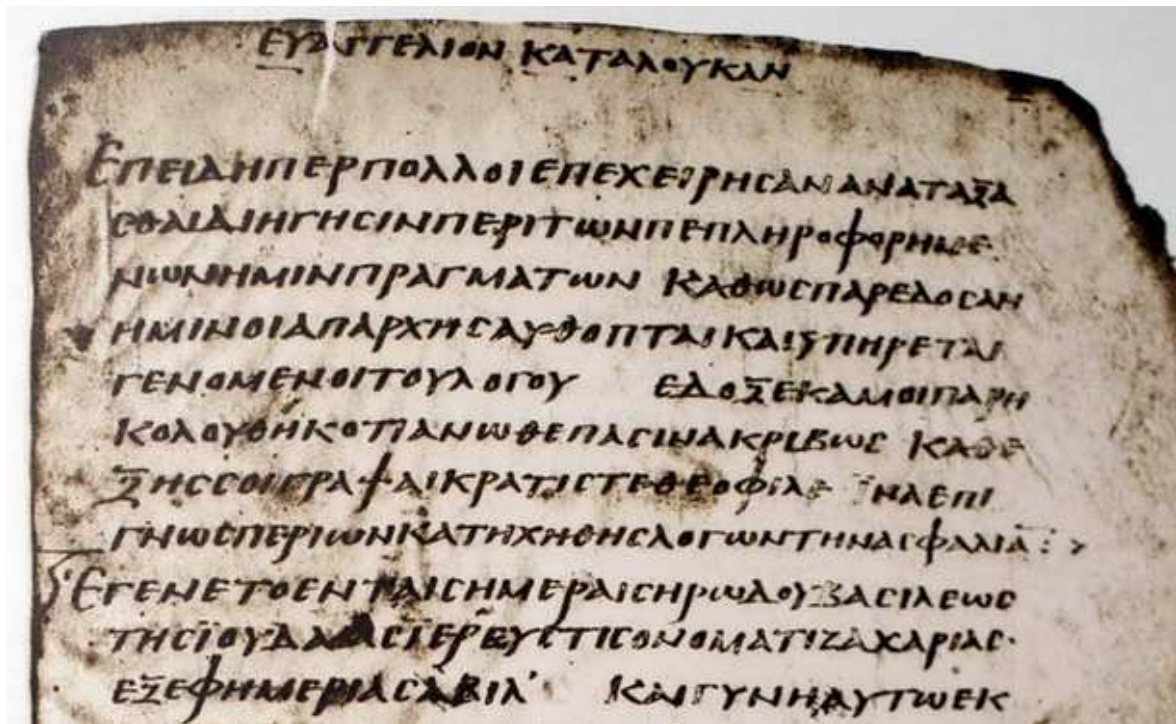 ΕΥΑΓΓΕΛΙΟΝ ΚΑΤΑΛΟΥΚΑΝ
ΕΠΕΙΔΗΠΕΡΠΟΛΛΟΙΕΠΕΧΕΙΡΗϹΑΝΑΝΑΤΑΞΑ
ϹΘΑΙΔΙΗΓΗϹΙΝΠΕΡΙΤΩΝΠΕΠΛΗΡΟΦΟΡΗΜΕ
ΝΩΝΗΜΙΝΠΡΑΓΜΑΤΩΝ ΚΑΘΩϹΠΑΡΕΔΟϹΑΝ
ΗΜΙΝΟΙΑΠΑΡΧΗϹΑΥΘΟΠΤΑΙΚΑΙΥΠΗΡΕΤΑΙ
ΓΕΝΟΜΕΝΟΙΤΟΥΛΟΓΟΥ ΕΔΟΞΕΚΑΜΟΙΠΑΡΗ
ΚΟΛΟΥΘΗΚΟΤΙΑΝΩΘΕΠΑϹΙΝΑΚΡΙΒΩϹ ΚΑΘΕ
ΞΗϹϹΟΙΓΡΑΨΑΙΚΡΑΤΙϹΤΕΘΕΟΦΙΛΕ ΪΝΑΕΠΙ
ΓΝΩϹΠΕΡΙΩΝΚΑΤΗΧΗΘΗϹΛΟΓΩΝΤΗΝΑϹΦΑΛΙΑ
ΕΓΕΝΕΤΟΕΝΤΑΙϹΗΜΕΡΑΙϹΗΡΩΔΟΥΒΑϹΙΛΕΩϹ
ΤΗϹΪΟΥΔΑΙΑϹΪΕΡΕΥϹΤΙϹΟΝΟΜΑΤΙΖΑΧΑΡΙΑϹ·
ΕΞΕΦΗΜΕΡΙΑϹΑΒΙΑ' ΚΑΙΓΥΝΗΑΥΤΩΕΚ